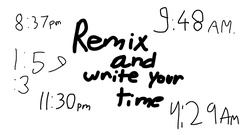 8:37pm
9:48 AM.
Remix
and
write your
time
1:59
:3
11:30pm
4:29 AM